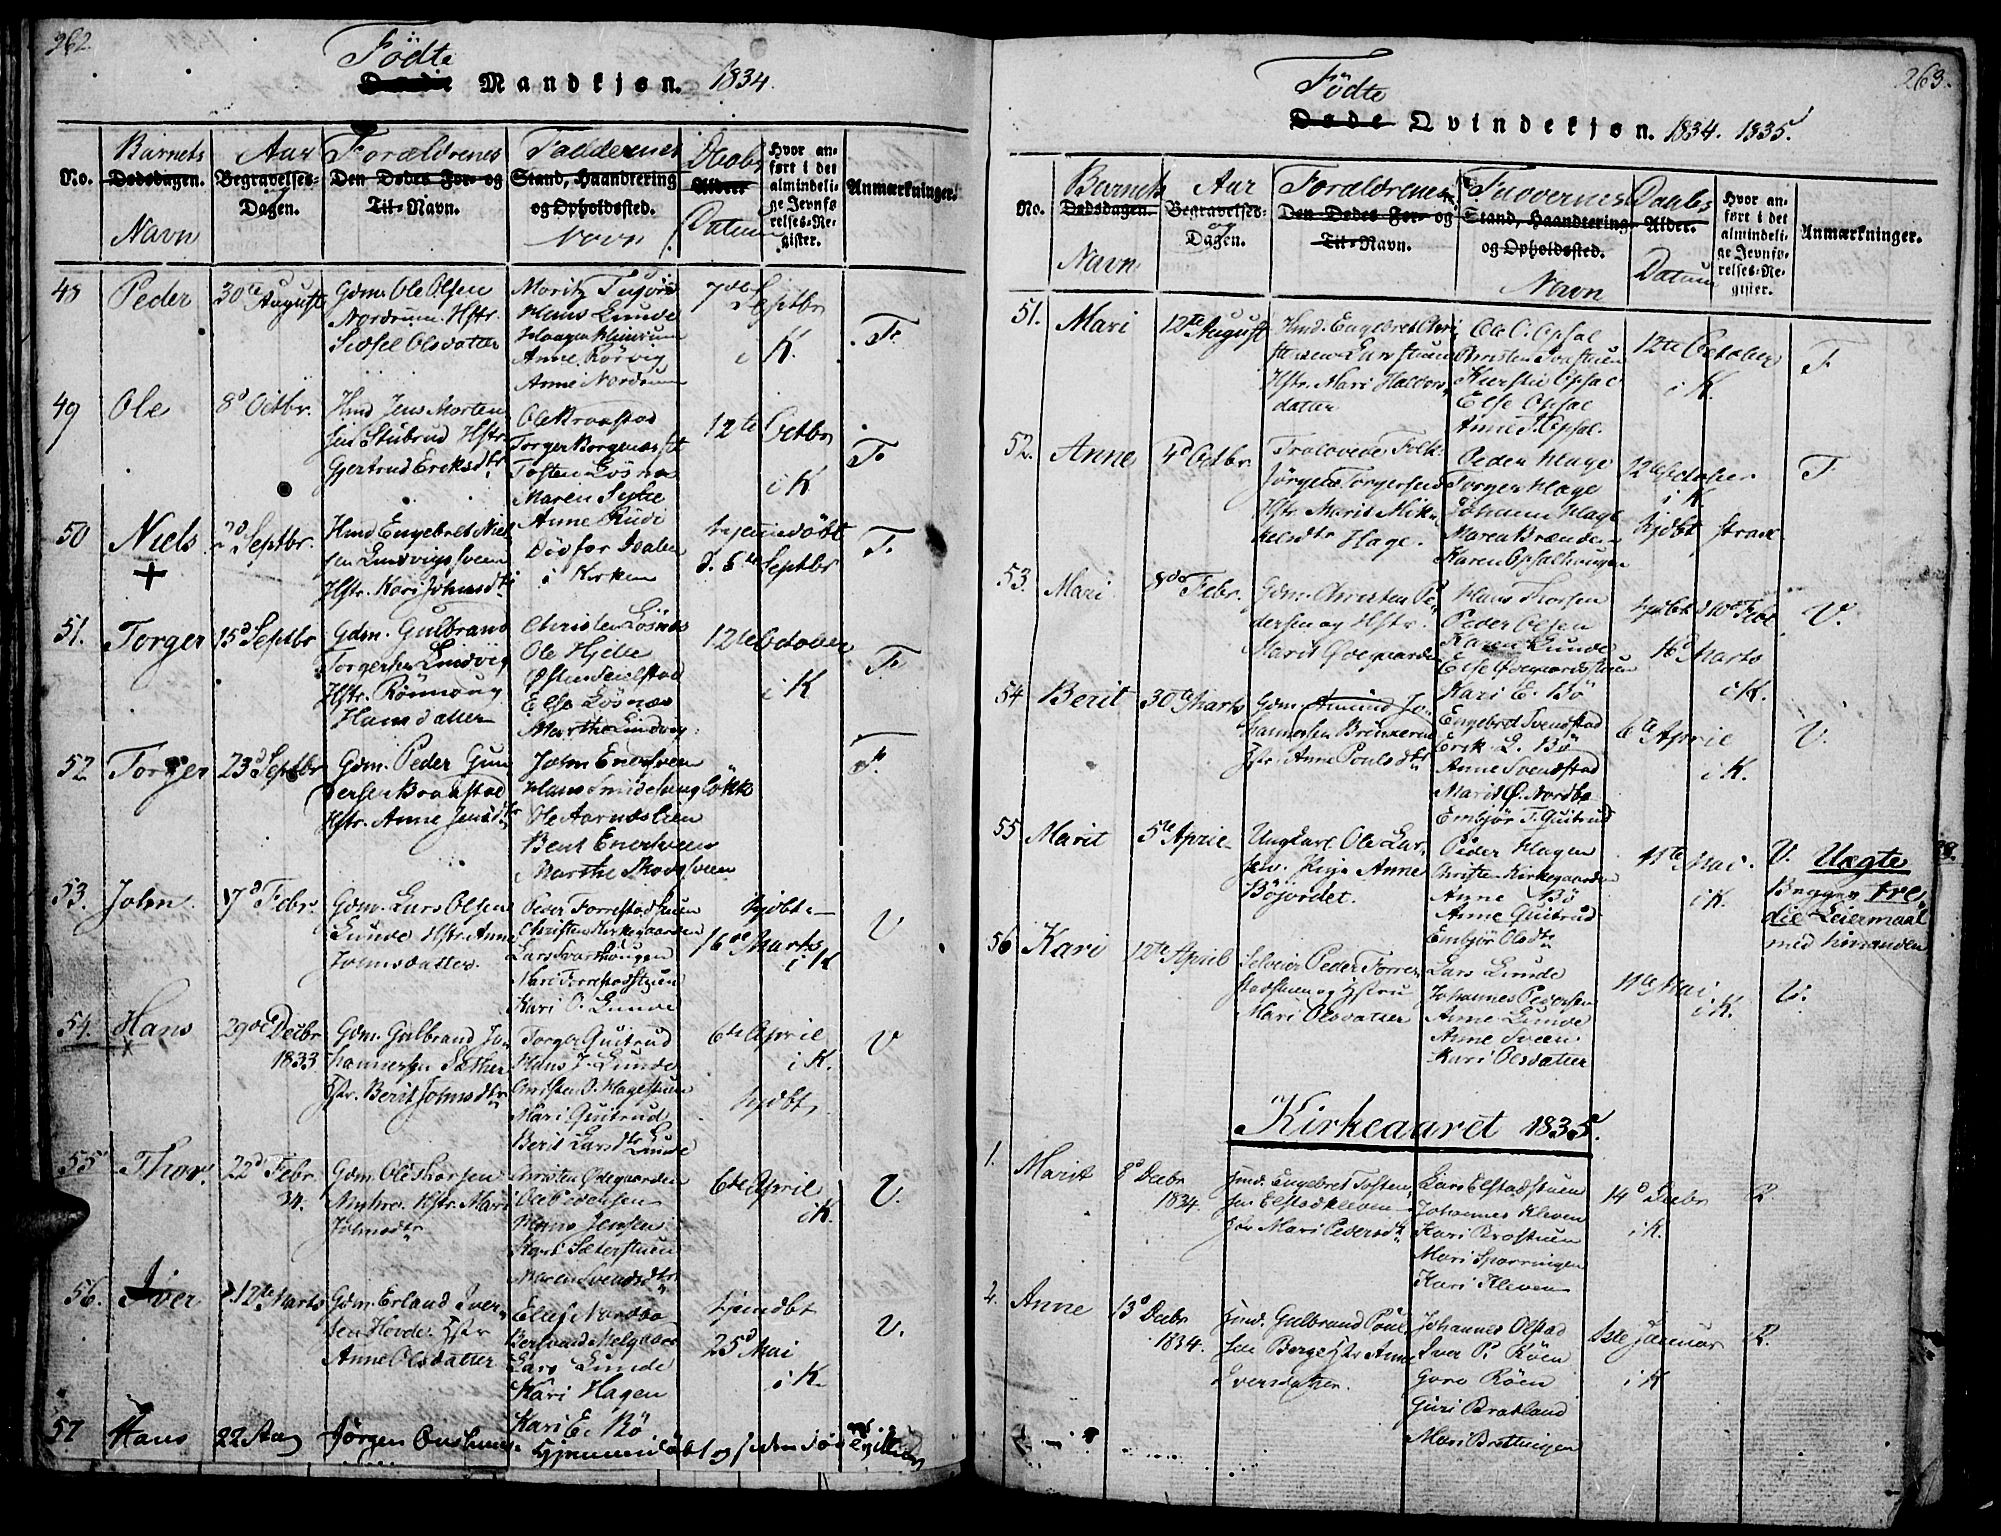 262.
Födte
Døde Mandkjøn. 1834.
No.
Barnets
Dødsdagen.
Navn
Aar
Begravelses-
Dagen.
Forældrenes
Den Dødes For- og
Til-Navn.
Faddernes
Stand, Haandtering
og Opholdssted.
Navn
Daabs
Alder
Datum
Hvor an-
ført i det
almindeli-
ge Jevnfø-
relses-Re-
gister.
Anmærkninger.
48 Peder 30te August
Gdm. Ole Olsen
Nordrum Hstr.
Sidsel Olsdatter
Hans Lunde
Anne Rörvig
Anne Nordrum
7de Septbr
i K.
F.
49 Ole 8d Octbr.
Hmd Jens Morten
sen Stubrud Hstr.
Gjertrud Eriksdtr
Ole Braastad
Torger Borgenæs
Tosten Lösna
Maren
Anne Rudi
12te Octbr
i K
F.
50 Niels 2d Septbr.
Hmd Engebret Niel
sen Lindvigssveen
Hstr. Kari Johnsdtr
Död for Daaben
i Kirken
hjemmedöbt
d. 5te Septbr
F.
51. Torger 15d Septbr
Gdm. Gulbrand
Torgersen Lindvig
Hstr. Rönnoug
Hansdatter
Christen Lösnæs
Ole Hjelle
Else Lösnæs
Marthe Lindvig
12te October
i K
F.
52 Torger 23d Septbr
Gdm. Peder Gun
dersen Braastad
Hstr. Anne Jensdtr
John Enersveen
Hans Smidehuuglökke
Ole Aarnæslien
Bent Enersveen
Marthe Skovsveen
F.
53. John 17d Febr.
Gdm. Lars Olsen
Lunde Hstr. Anne
Johnsdatter.
Peder Forrestadstuen
Christen Kirkegaarden
Lars Svarthougen
Mari Forrestadstuen
Kari O. Lunde
hjdbt
16de Marts
i K
V
54. Hans 29de Decbr
1833
Gdm. Gulbrand Jo-
hannesen Sæther
Hstr. Berit Johnsdtr
Torger Guitrud
Hans J. Lunde
Christen O. Hagestuen
Mari Guitrud
Berit Larsdtr Lunde
6te April
i K.
hjdbt
V
55 Thor. 22d Febr
34.
Gdm. Ole Thorsen
Hstr. Mari
Johnsdtr
Christen Ödegaarden
Ole Pedersen
Hans Jensen
Kari Sæterstuen
Maren Svendsdtr
6te April
i K.
V.
56. Iver 12te Marts
Gdm. Erland Iver-
sen Hovde Hstr
Anne Olsdatter
Ellef Nordbø
Bersvend Melgaard
Lars Lunde
Kari Hagen
Kari E. Bö
hjemdbt
25d Mai
i K.
V.
57 Hans 22 Aug
Jörgen
Hjemmedöbt og siden död
263.
Födte
Døde Qvindekjøn. 1834. 1835.
No.
Barnets
Dødsdagen.
Navn
Aar
Begravelses-
og
Dagen.
Forældrenes
Den Dødes For- og
Til-Navn.
Faddernes
Stand, Haandtering
og Opholdssted.
Navn
Daabs
Alder.
Datum
Hvor an-
ført i det
almindeli-
ge Jevnfø-
relses-Re-
gister.
Anmærkninger.
51. Mari 12te August
Hmd. Engebret Chri
stensen
Hstr. Mari Halvors
datter
Ole O. Opsal
Kiersti Opsal
Else Opsal
Anne T. Opsal.
12te October
i K.
F
52. Anne 4d Octbr.
Trolovede Folk
Jörgen Torgersen
Hstr. Marit Mik-
kelsdtr Hage.
Peder Hage
Torger Hage
Johanne Hage
Maren Brænden
Karen Opsalhaugen
12te October
i K.
hjdbt strax
F
53. Mari 8de Febr.
Gdm. Christen Pe-
dersen og Hstr.
Marit Ödegaarden
Hans Thorsen
Peder Olsen
Karen Lunde
Else Ödegaardsstuen
Kari E. Bö
hjdbt d 10de Feb.
16de Marts
i K.
V.
54 Berit 30te Marts
Gdm. Amund Jo-
hannesen
Hstr. Anne Poulsdtr
Engebret Svendstad
Erik L. Bö
Anne Svendstad
Marit O. Nordbø
Embjör T. Guitrud
6te April
i K.
V.
55 Marit 5te April
Ungkarl Ole Lar-
sen. Pige Anne
Böjordet.
Peder Hagen
Christen Kirkegaarden
Anne Bö
Anne Guitrud
Embjör Olsdtr
11te Mai
i K.
V. Uægte
Begges tre-
die Leiermaal
med hinanden
56 Kari 12te April
Selveier Peder Forre-
stadstuen og Hstru
Mari Olsdatter
Lars Lunde
Johannes Pedersen
Anne Lunde
Anne Sveen
Kari Olsdatter
11te Mai
i K.
V.
Kirkeaaret 1835.
1. Marit 8d Decbr
1834.
Hmd. Engebret Tosten-
sen Elstadkleven
Hstr Mari Pedersdtr
Lars Elstadstuen
Johannes Kleven
Kari Brostuen
Mari Sparringen
Kari Kleven
14d Decbr
i K.
R
2. Anne 13d Decbr
1834.
Hmd. Gulbrand Poul-
sen Berge Hstr Anne
Iversdatter.
Johannes Olstad
Iver P. Röen
Goro Röen
Guri Bratland
Mari Brættingen
1ste Januar
i K
R.